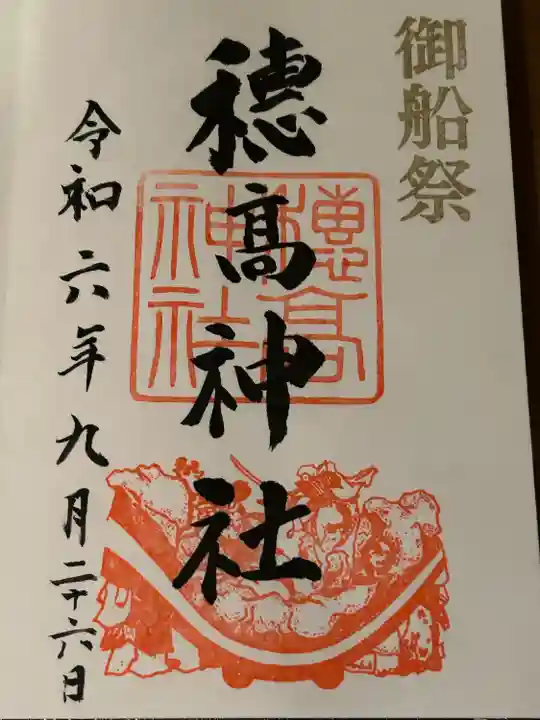 御船祭
穂髙神社
穂髙
神社
令和六年九月二十六日